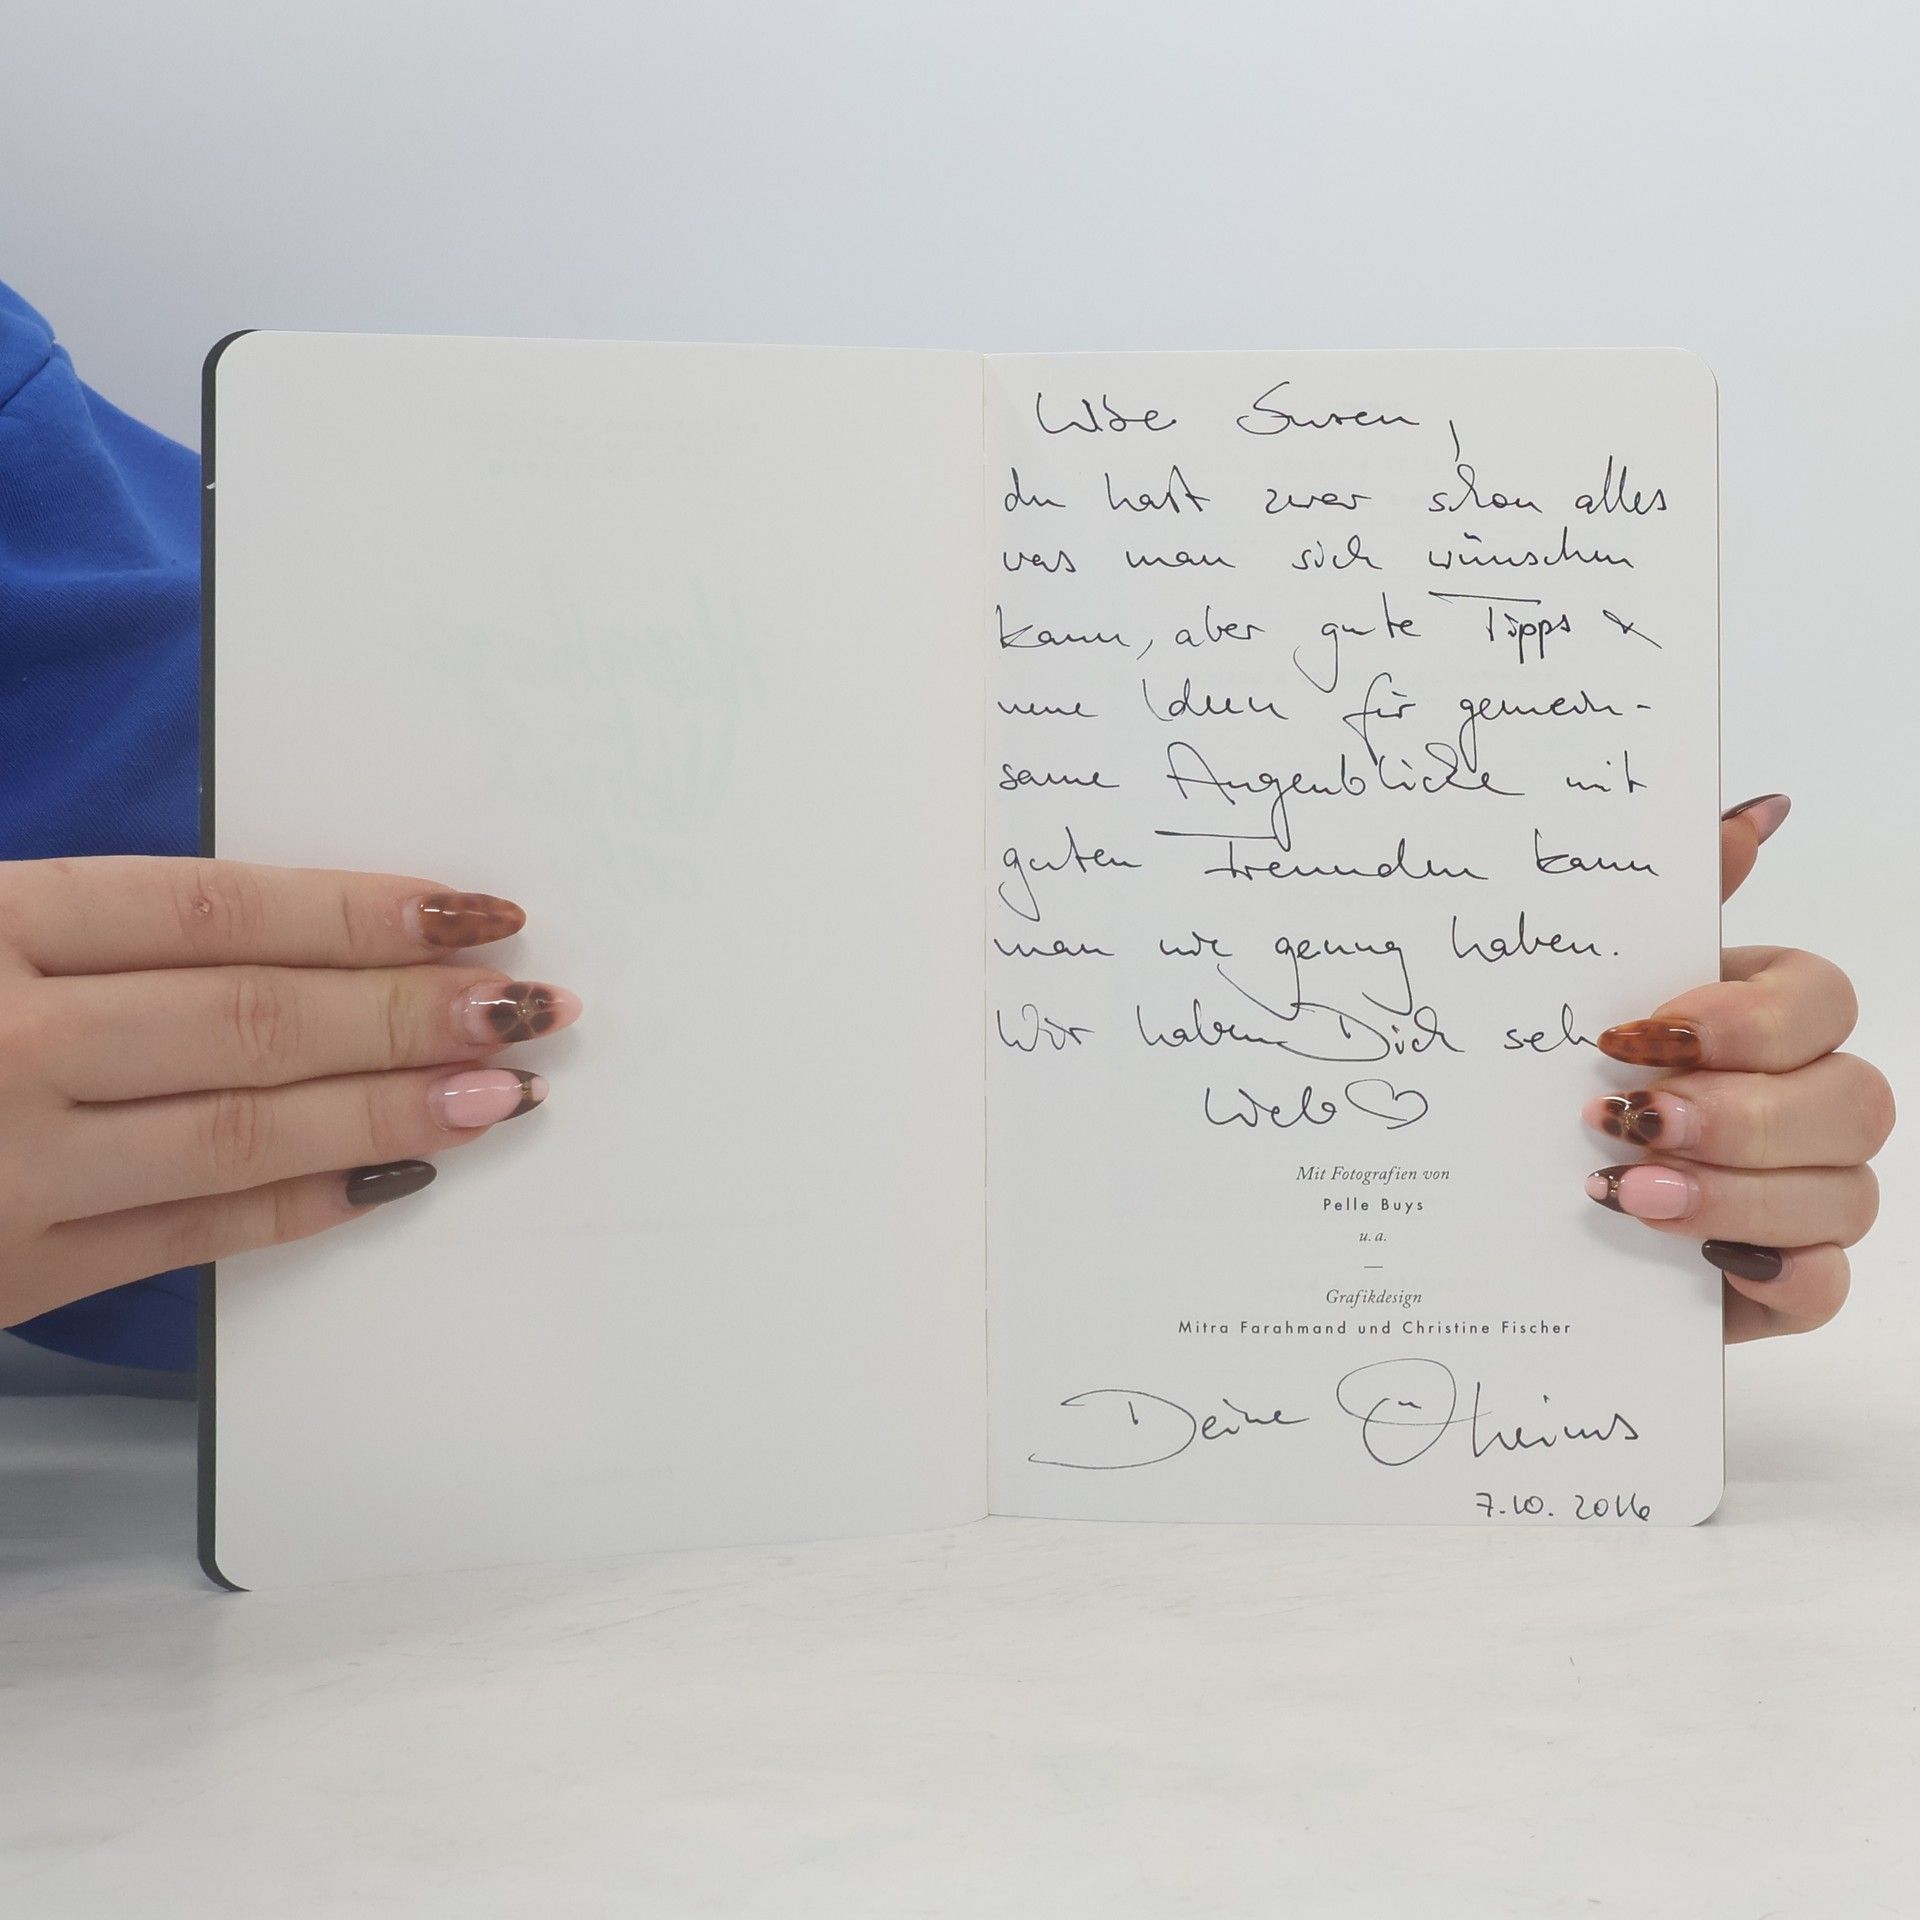 Liebe Susen,
du hast zwar schon alles
was man sich wünschen
kann, aber gute Tipps &
neue Ideen für gemein-
same Augenblicke mit
guten Freunden kann
man nie genug haben.
Wir haben Dich seh
lieb ♡
Mit Fotografien von
Pelle Buys
u. a.
—
Grafikdesign
Mitra Farahmand und Christine Fischer
Deine
7.10. 2016